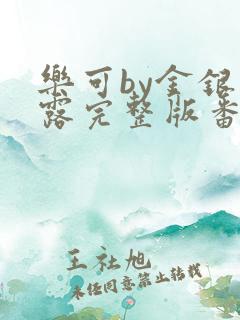 樂可by金银
露完整版番
王社旭
未经同意禁止转载